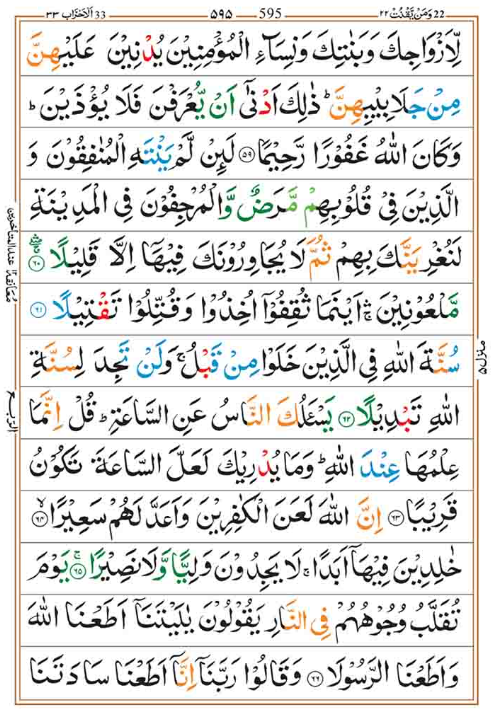 33 اَلْاَحْزَاب ٣٣ ۵۹۵ 595 22 وَمَنْ يَّقْنُتْ ٢٢
لِّاَزْوَاجِكَ وَبَنٰتِكَ وَنِسَآءِ الْمُؤْمِنِيْنَ يُدْنِيْنَ عَلَيْهِنَّ
مِنْ جَلَابِيْبِهِنَّ ؕ ذٰلِكَ اَدْنٰۤى اَنْ يُّعْرَفْنَ فَلَا يُؤْذَيْنَ ؕ
وَكَانَ اللّٰهُ غَفُوْرًا رَّحِيْمًا ۟۵۹ لَئِنْ لَّمْ يَنْتَهِ الْمُنٰفِقُوْنَ وَ
الَّذِيْنَ فِيْ قُلُوْبِهِمْ مَّرَضٌ وَّالْمُرْجِفُوْنَ فِى الْمَدِيْنَةِ
لَنُغْرِيَنَّكَ بِهِمْ ثُمَّ لَا يُجَاوِرُوْنَكَ فِيْهَاۤ اِلَّا قَلِيْلًا ۟۶۰
مَّلْعُوْنِيْنَ ۛۚ اَيْنَمَا ثُقِفُوْۤا اُخِذُوْا وَقُتِّلُوْا تَقْتِيْلًا ۟۶۱
سُنَّةَ اللّٰهِ فِى الَّذِيْنَ خَلَوْا مِنْ قَبْلُ ۚ وَلَنْ تَجِدَ لِسُنَّةِ
اللّٰهِ تَبْدِيْلًا ۟۶۲ يَسْـَٔلُكَ النَّاسُ عَنِ السَّاعَةِ ؕ قُلْ اِنَّمَا
عِلْمُهَا عِنْدَ اللّٰهِ ؕ وَمَا يُدْرِيْكَ لَعَلَّ السَّاعَةَ تَكُوْنُ
قَرِيْبًا ۟۶۳ اِنَّ اللّٰهَ لَعَنَ الْكٰفِرِيْنَ وَاَعَدَّ لَهُمْ سَعِيْرًا ۙ۶۴
خٰلِدِيْنَ فِيْهَاۤ اَبَدًا ۚ لَا يَجِدُوْنَ وَلِيًّا وَّلَا نَصِيْرًا ۚ۶۵ يَوْمَ
تُقَلَّبُ وُجُوْهُهُمْ فِى النَّارِ يَقُوْلُوْنَ يٰلَيْتَنَاۤ اَطَعْنَا اللّٰهَ
وَاَطَعْنَا الرَّسُوْلَا ۟۶۶ وَقَالُوْا رَبَّنَاۤ اِنَّاۤ اَطَعْنَا سَادَتَنَا
معانقة ١٢ عند المتأخرين
الربع
منزل ۵